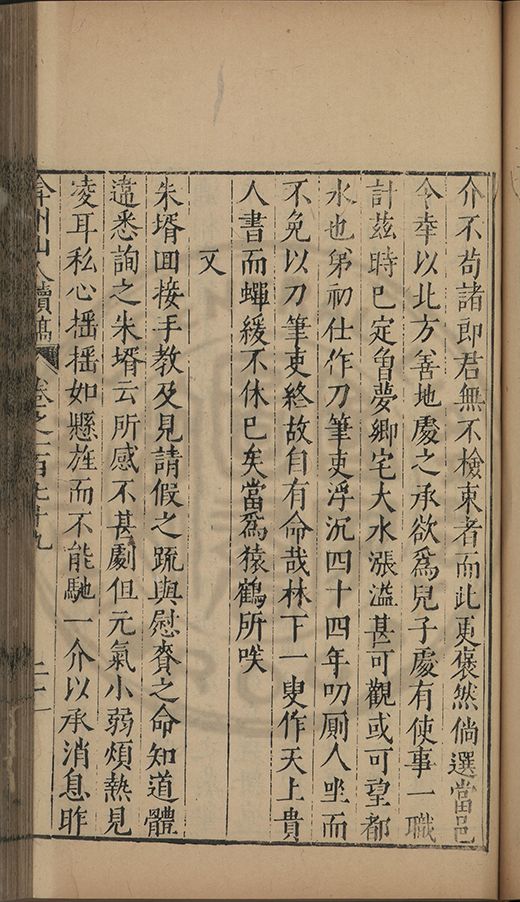 介不苟諸即君無不檢束者而此更褒然倘選當邑
令幸以北方善地處之承欲爲兒子處有使事一職
計玆時已定曾夢鄉宅大水漲溢甚可觀或可望都
水也第初仕作刀筆吏浮沉四十四年叨厠人㘴而
不免以刀筆吏終故自有命哉林下一叟作天上貴
人書而蟬緩不休已矣當爲猿鶴所咲
又
朱壻囬接手教及見請假之䟽與慰賚之命知道體
違悉詢之朱壻云所感不甚劇但元氣小弱煩熱見
凌耳私心揺揺如懸旌而不能馳一介以承消息昨
弇州山人續稿 卷之一百七十九